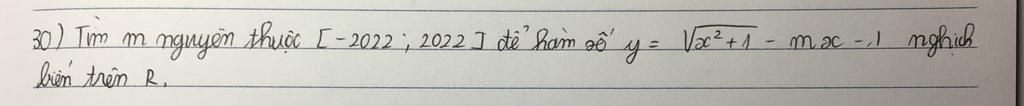 30) Tìm m nguyên thuộc [-2022; 2022] để hàm số y = √(x²+1) - mx - 1 nghịch
biến trên R.